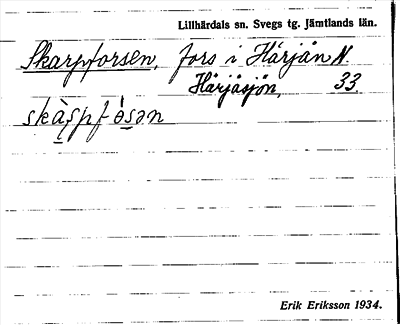 Lillhärdals sn. Svegs tg. Jämtlands län.
Skarpforsen, fors i Härjån N.
Härjåsjön, 33
skàs̱pfòs̱ən
Erik Eriksson 1934.